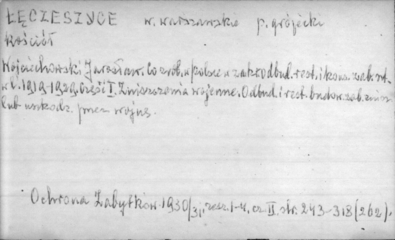 ŁĘCZESZYCE w. warszawskie p. grójecki
Kościół
Wojciechowski Jarosław. Co zrob. w Polsce w zakr. odbud. rest. i konserw. zab.
w l. 1919-1929. Część I. Zniszczenia wojenne. Odbud. i rest. budow. zab. znisz
lub uszkodz. przez wojnę.
Ochrona Zabytków. 1930/31, zesz. 1-4, cz. II str. 243-318 (262).